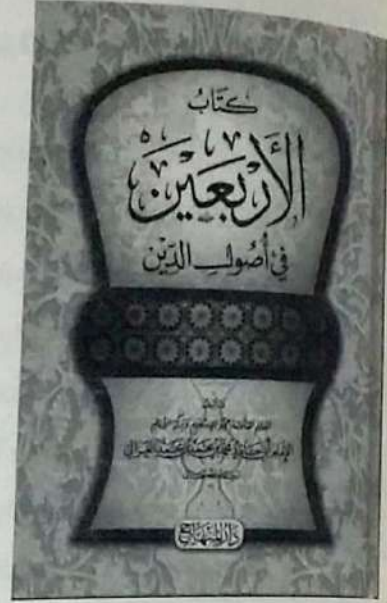 كتَابُ
الأَرْبَعِين
في أُصُولِ الدِّين
الإمام أبي حامد محمد بن محمد بن محمد الغزالي
دار المنهاج